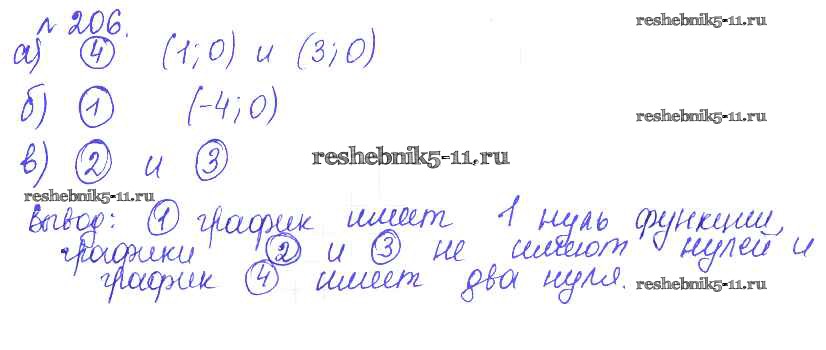 № 206. reshebnik5-11.ru
а) ④ (1;0) и (3;0)
б) ① (-4;0) reshebnik5-11.ru
в) ② и ③ reshebnik5-11.ru
reshebnik5-11.ru
Вывод: ① график имеет 1 нуль функции,
графики ② и ③ не имеют нулей и
график ④ имеет два нуля. reshebnik5-11.ru